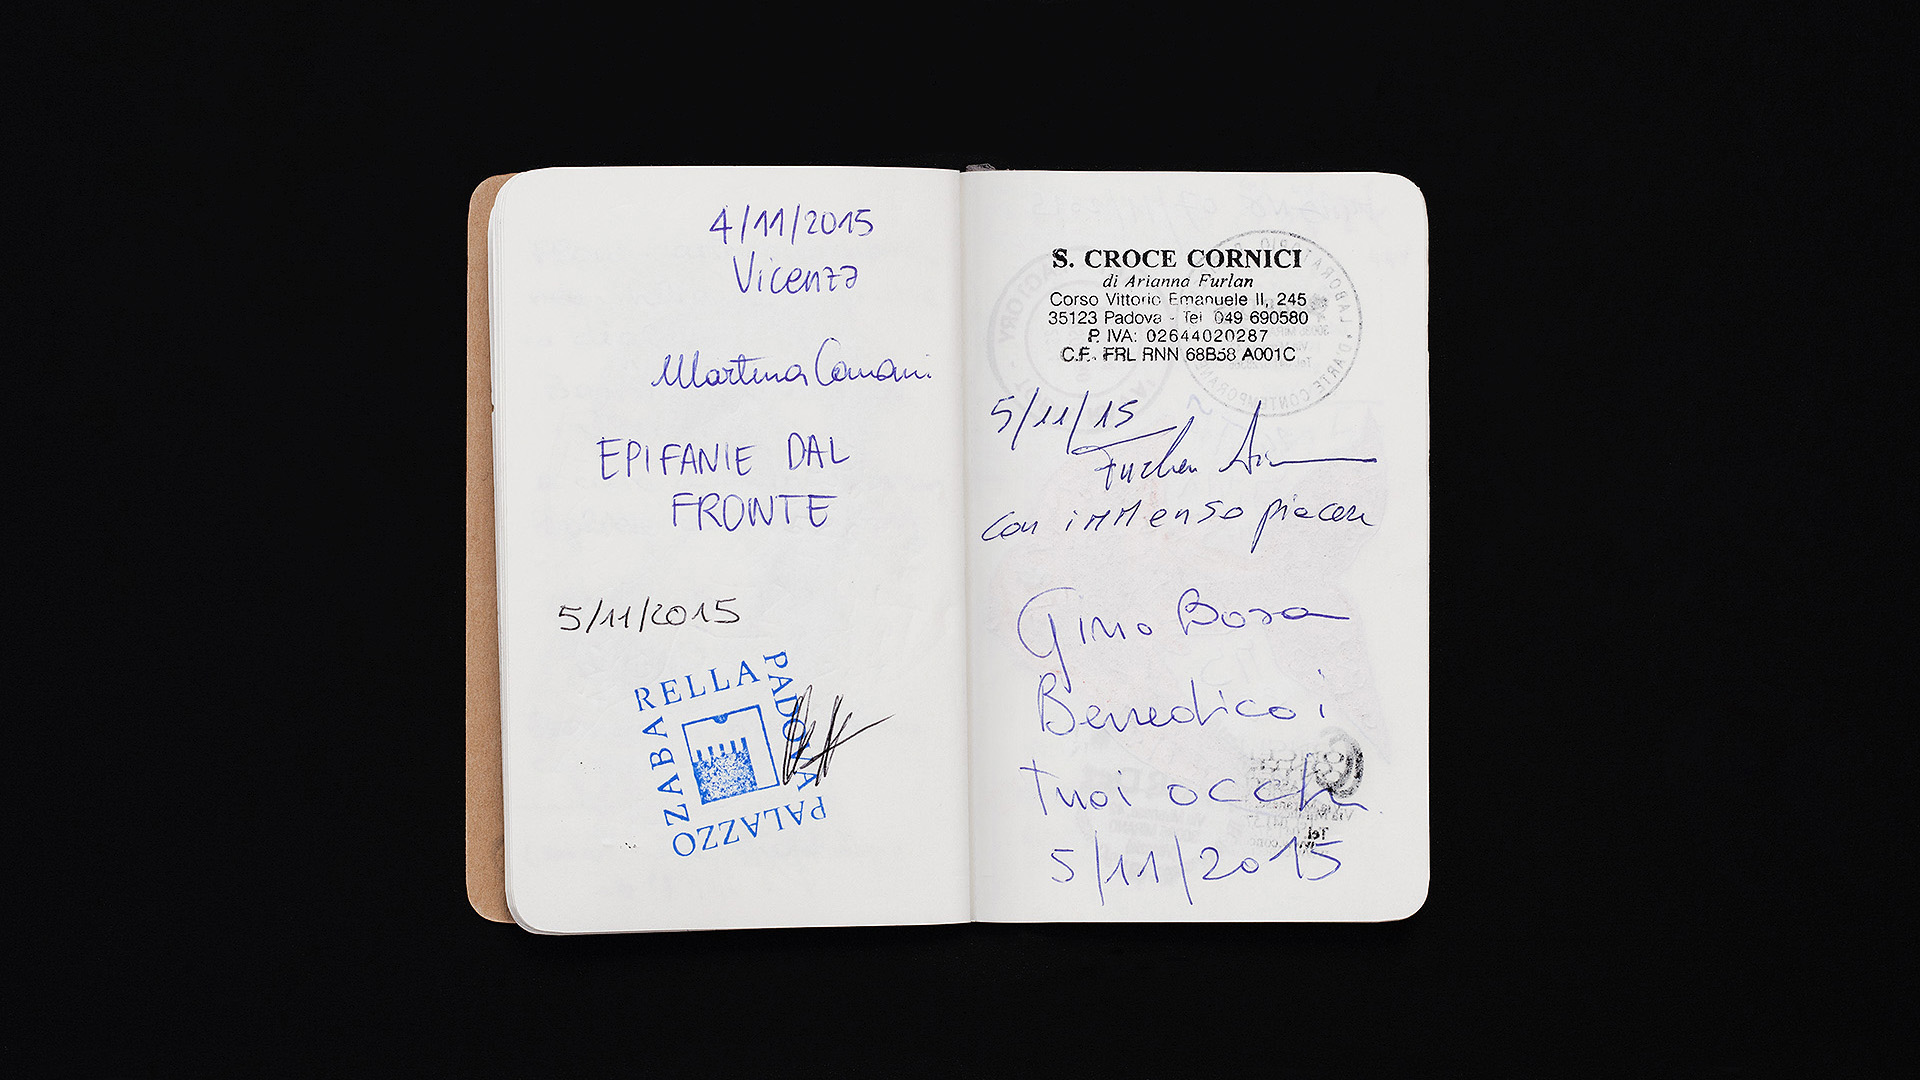 4/11/2015
Vicenza
Martina
EPIFANIE DAL
FRONTE
5/11/2015
PALAZZO ZABARELLA PADOVA
S. CROCE CORNICI
di Arianna Furlan
Corso Vittorio Emanuele II, 245
35123 Padova - Tel 049 690580
P. IVA: 02644020287
C.F. FRL RNN 68B58 A001C
5/11/15
Furlan
con immenso piacere
Gino Bosa
Benedico i
tuoi occhi
5/11/2015